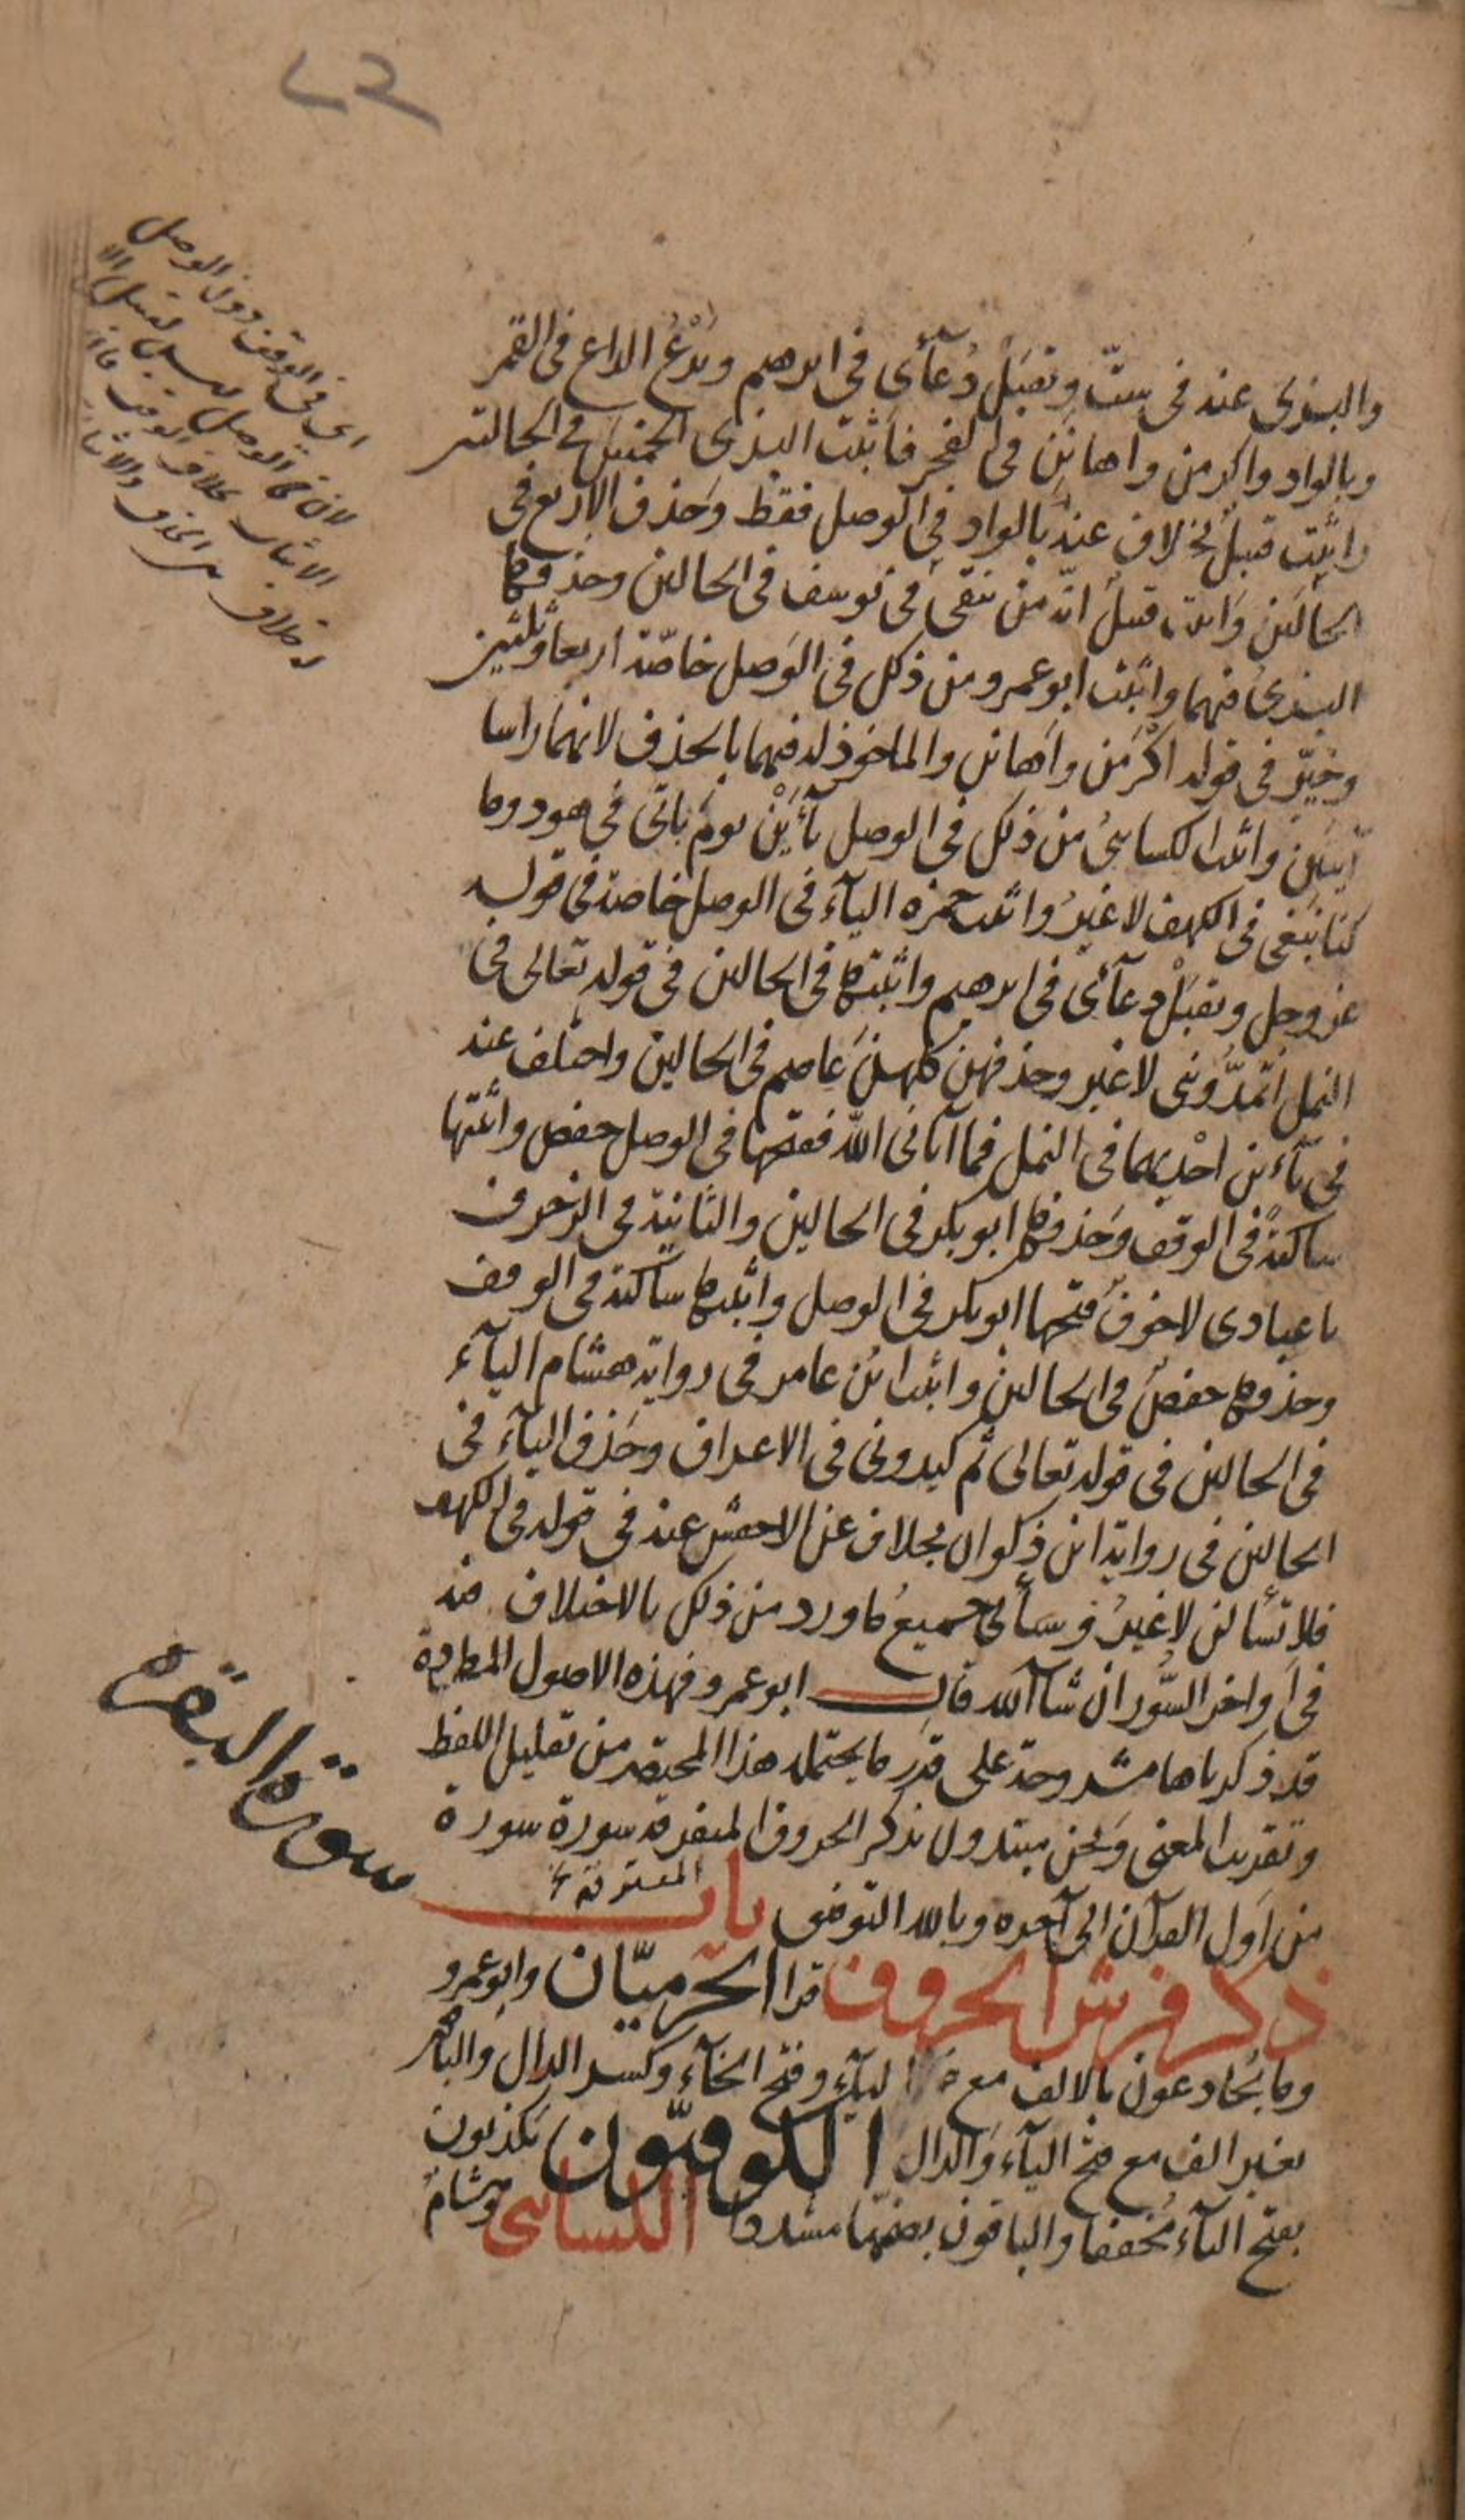 والبزى عنه فى ستّ وتقبّل دُعآئى فى ابرهيم ويَدْعُ الداع فى القمر
وبالواد واكرمن واهانَنِ فى الفجر فاثبت البزى الخمسَ فى الحالتين
واثبت قنبلٌ بخلاف عنه بالواد فى الوصل فقط وحَذف الاربع فى
الحالَين وَاثبت قنبل انّه من يتقى فى يوسف فى الحالين وحذفها
البزىُ فيهما واثبت ابو عمرو من ذلك فى الوَصل خاصّة اربعا وثلثين
وخيّر فى قوله اكرَمَن واَهانن والماخوذ له فيهما بالحذف لانهما راسا
آيتين واثبت الكسائىُ من ذلك فى الوصل يآءَيْن يومَ ياتى فى هود وما
كنا نبغى فى الكهف لا غيرُ واثبت حمزه اليآءَ فى الوصل خاصة فى قوله
عز وجل وتقبّلْ دعآئى فى ابرهيم واثبتها فى الحالين فى قوله تعالى فى
النمل اتمدُّونى لا غير وحذفهن كلهنّ عاصم فى الحالين واختلف عنه
فى يآءين احْديهما فى النمل فما آتانى اللّه ففتحها فى الوصل حفص واثبتها
ساكنةً فى الوقف وحَذفها ابو بكر فى الحالين والثانية فى الزخرف
يا عبادى لا خوفٌ فتحها ابو بكر فى الوصل واثبتها ساكنة فى الوقف
وحذفها حفصٌ فى الحالين واثبت ابنُ عامر فى رواية هشام اليآءَ
فى الحالين فى قوله تعالى ثم كيدونى فى الاعراف وحَذف اليآءَ فى
الحالين فى رواية ابن ذكوان بخلاف عن الاخفش عنه فى قوله فى الكهف
فلا تسْألنى لا غيرُ وسَيأتى جميعُ ما ورد من ذلك بالاختلاف فيه
فى اَواخر السُّور ان شآ الله قال ابو عمرو فهذه الاصول المطردة
قد ذكرناها مشروحة على قدر ما يحتمله هذا المختصر من تقليل اللفظ
وتقريب المعنى ونحن مبتدون بذكر الحروف المفرقه سورة سورة
من اَول القرآن الى آخره وبالله التوفيق باب
ذكر فرش الحروف قرا الحرميّان وابو عمرو
وما يُخادعون بالالف مع اليآء وفتح الخآء وكسر الدال والباقون
بغير الف مع فتح اليآء والدال الكوفيّون يكذبون
بفتح اليآء مُخففا والباقون بضمّها مشددا الكسائى وهشامٌ
سورة البقرة
اى فى الوقف دون الوصل
لان فى الوصل ليس لقنبل الا
الاثبات بخلاف الوقف
الحذف والاثبات